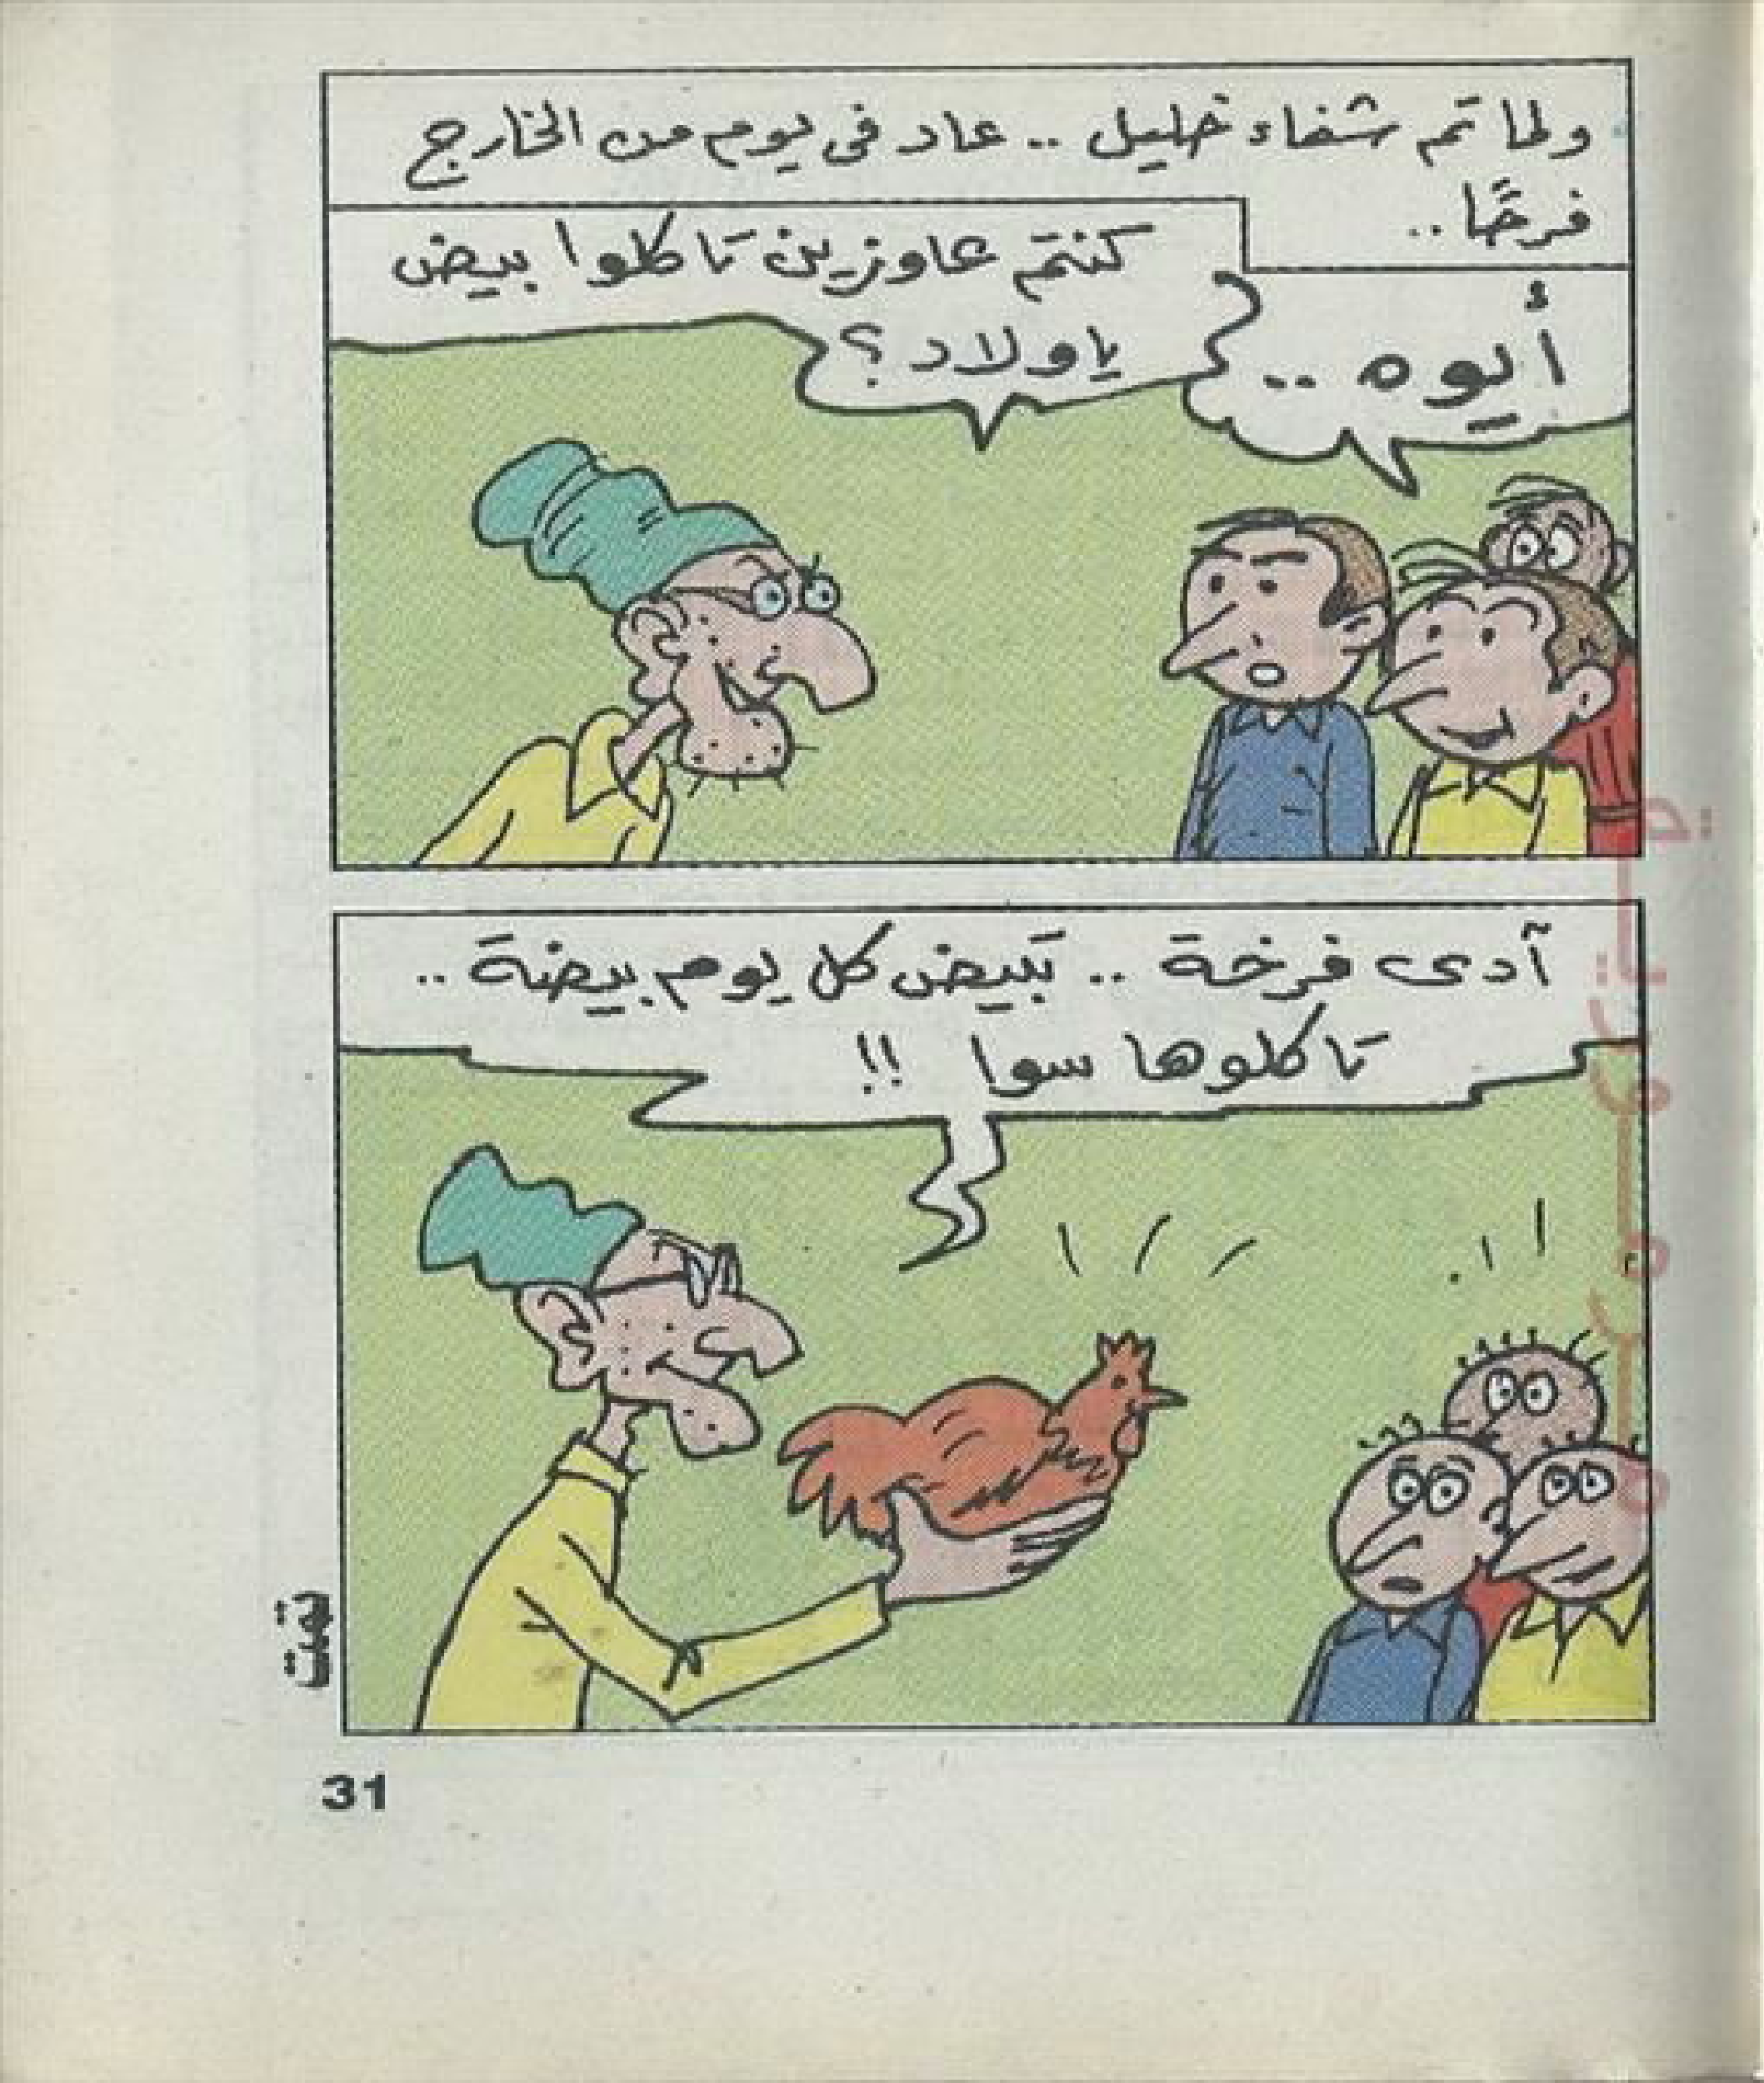 ولما تم شفاء خليل .. عاد فى يوم من الخارج
فرحًا ..
كنتم عاوزين تاكلوا بيض
يا ولاد ؟
أيوه ..
آدى فرخة .. تبيض كل يوم بيضة ..
تاكلوها سوا !!
تمت
31